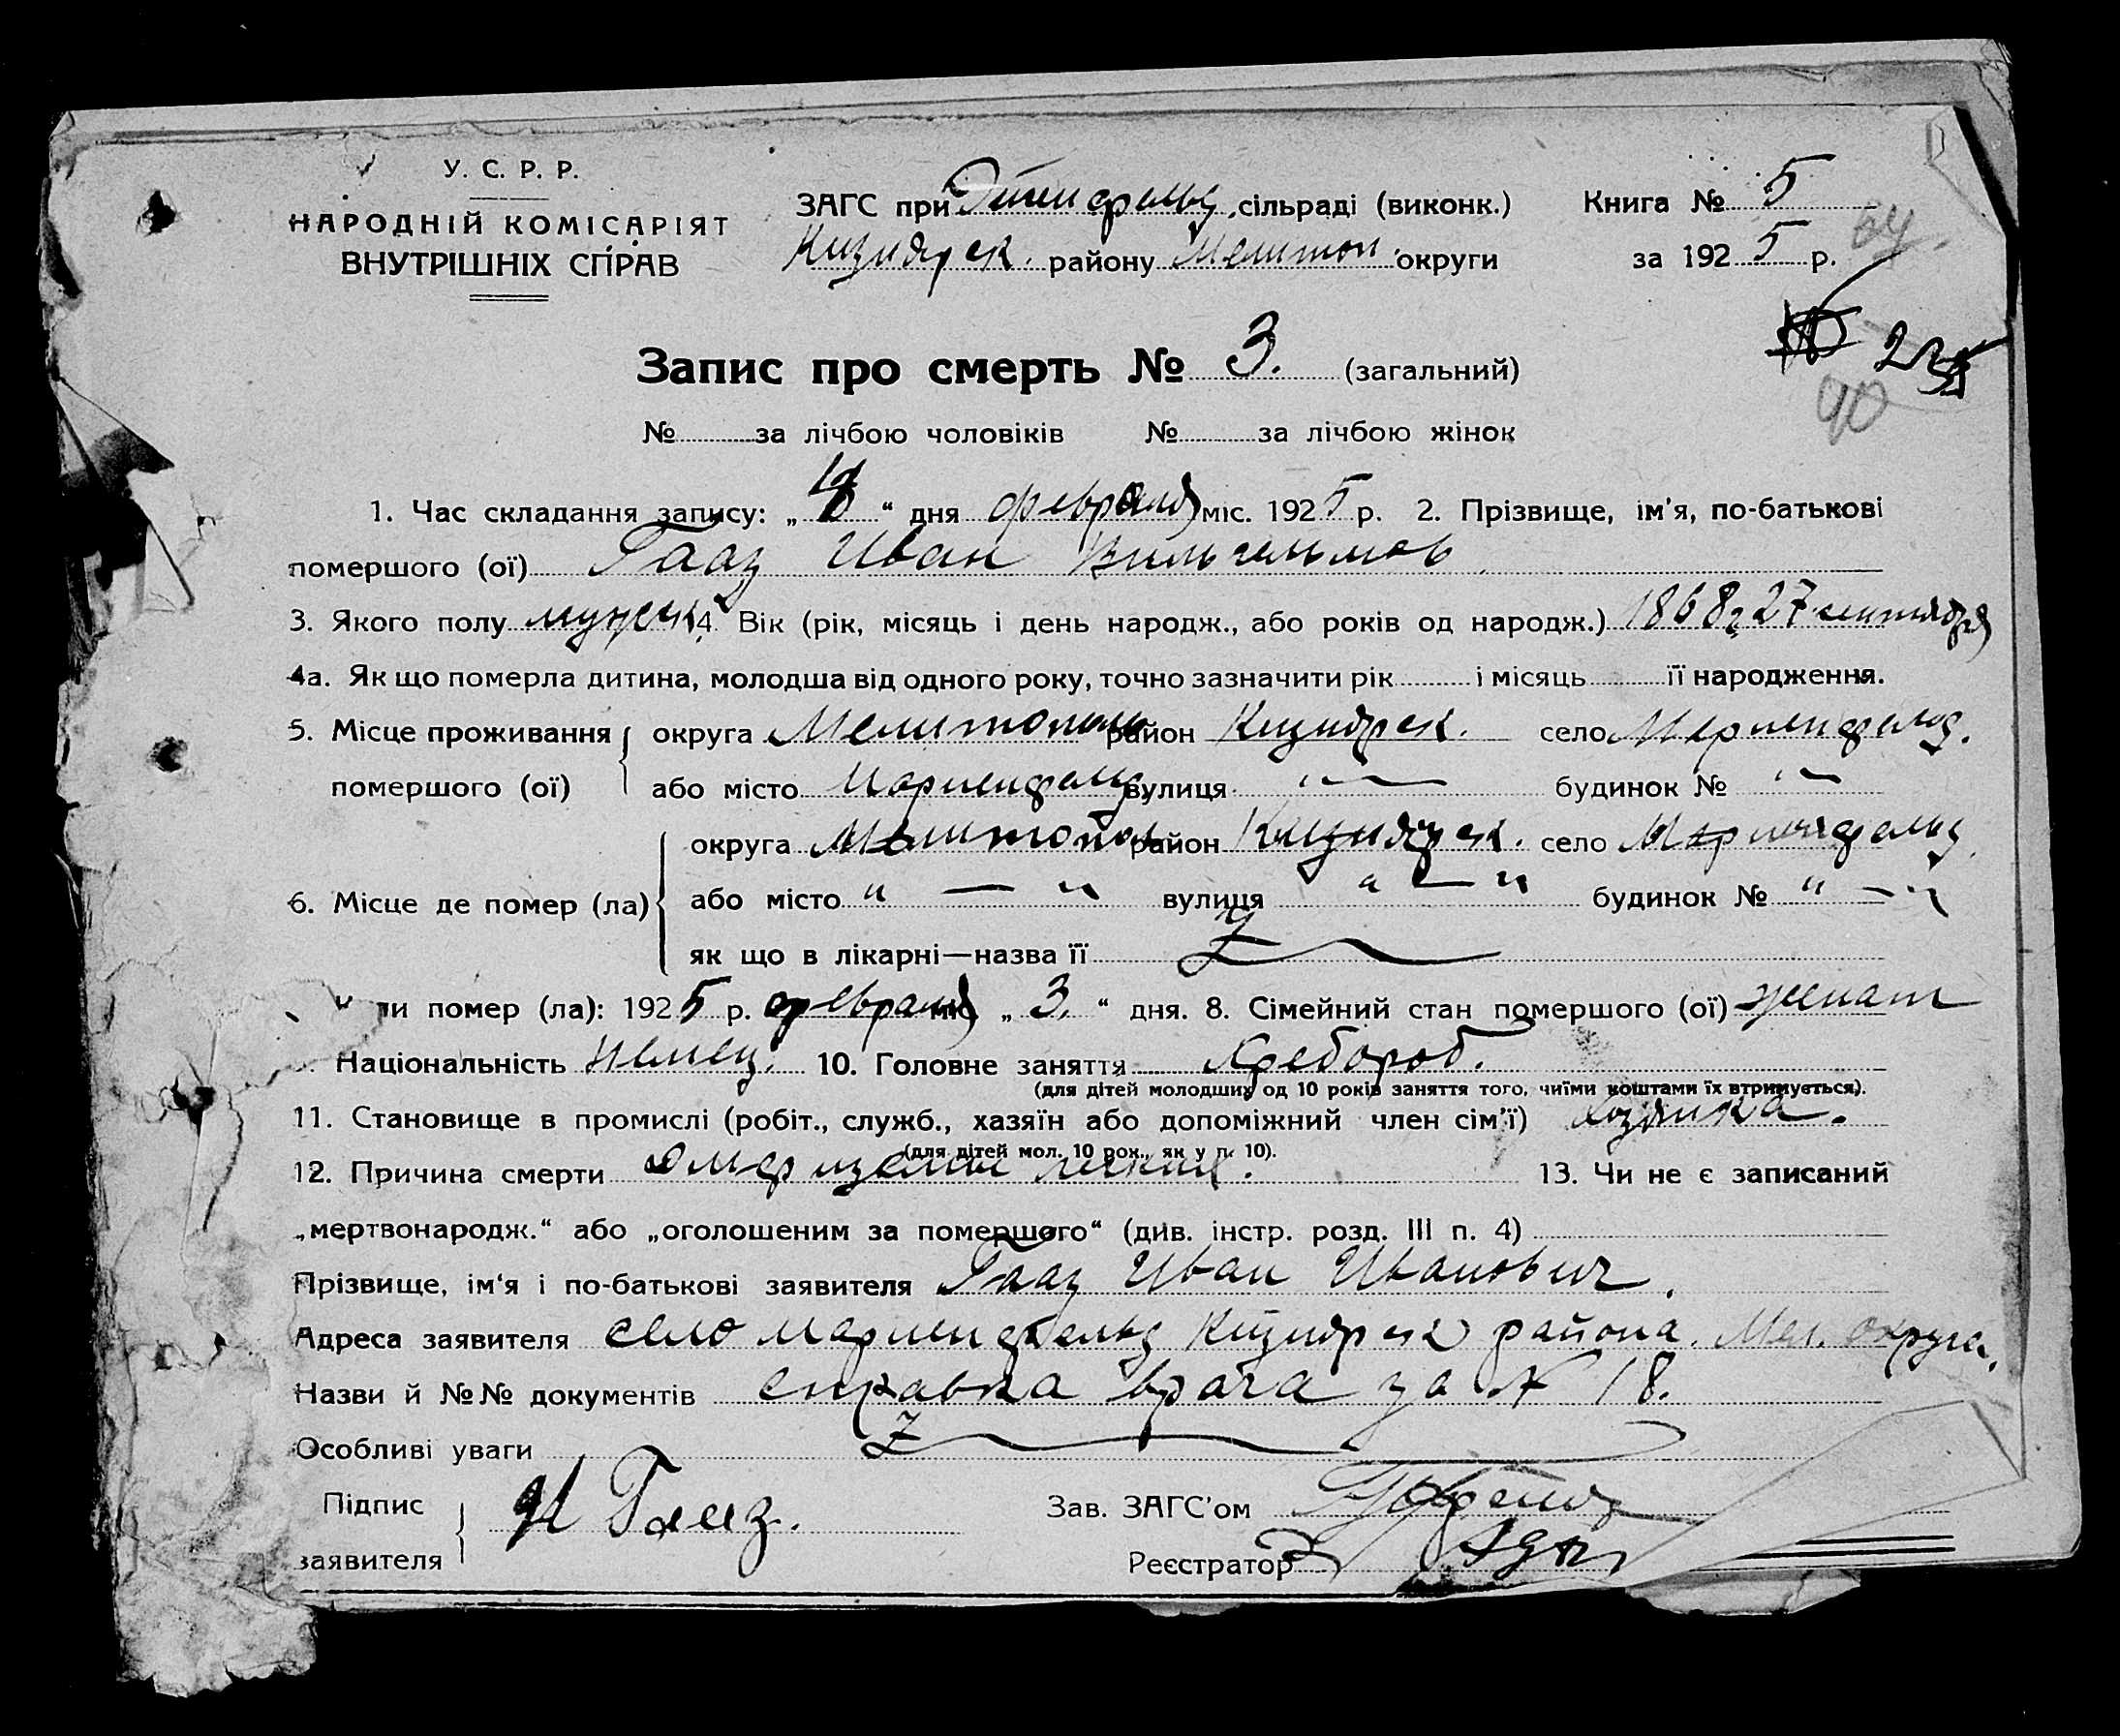 У. С. Р. Р.
НАРОДНІЙ КОМІСАРІЯТ
ВНУТРІШНІХ СПРАВ
ЗАГС при сільраді (виконк.)
Кизиярск. району Мелитоп. округи
Книга № 5
за 1925 р.
64
90
Запис про смерть № 3. (загальний)
№ за лічбою чоловіків № за лічбою жінок
1. Час складання запису: „ “ дня февраля міс. 1925 р. 2. Прізвище, ім'я, по-батькові
помершого (ої) Гааз Иван Вильгельмов
3. Якого полу мужск 4. Вік (рік, місяць і день народж., або років од народж.) 1868 г 27 сентября
4а. Як що померла дитина, молодша від одного року, точно зазначити рік і місяць її народження.
5. Місце проживання округа Мелитополь район Кизиярск. село Мариенфельд.
помершого (ої) або місто Мариенфельд вулиця "— будинок № "—
округа Мелитополь район Кизиярск. село Мариенфельд
6. Місце де помер (ла) або місто " — " вулиця " — " будинок № " — "
як що в лікарні—назва її
ли помер (ла): 1925 р. февраля міс „ 3. “ дня. 8. Сімейний стан помершого (ої) женат
Національність немец. 10. Головне заняття хлебороб.
(для дітей молодших од 10 років заняття того, чиїми коштами їх втримується).
11. Становище в промислі (робіт., служб., хазяїн або допоміжний член сім'ї)
(для дітей мол. 10 рок., як у п. 10).
12. Причина смерти легких. 13. Чи не є записаний
„мертвонародж.“ або „оголошеним за помершого“ (див. інстр. розд. III п. 4)
Прізвище, ім'я і по-батькові заявителя Гааз Иван Иванович.
Адреса заявителя село Мариенфельд Кизиярск района. Мел. округа.
Назви й №№ документів справка врача за № 18.
Особливі уваги
Підпис
заявителя
И Гааз.
Зав. ЗАГС'ом
Реєстратор